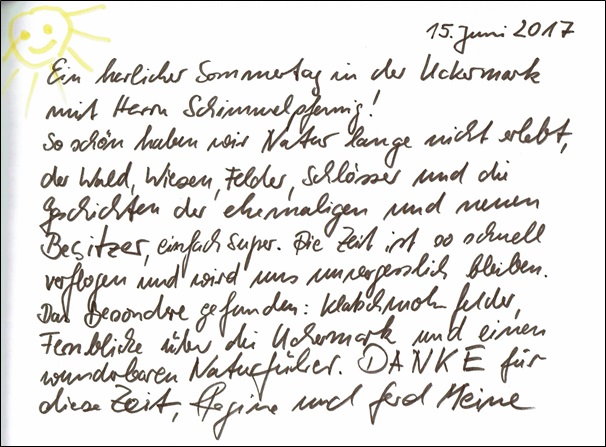 15. Juni 2017
Ein herlicher Sommertag in der Uckermark
mit Herrn Schimmelpfennig!
So schön haben wir Natur lange nicht erlebt,
der Wald, Wiesen, Felder, Schlösser und die
Geschichten der ehemaligen und neuen
Besitzer, einfach super. Die Zeit ist so schnell
verflogen und wird uns unvergesslich bleiben.
Das Besondere gefunden: Klatschmohnfelder,
Fernblicke über die Uckermark und einen
wunderbaren Naturführer. DANKE für
diese Zeit, Regine und Gerd Meine